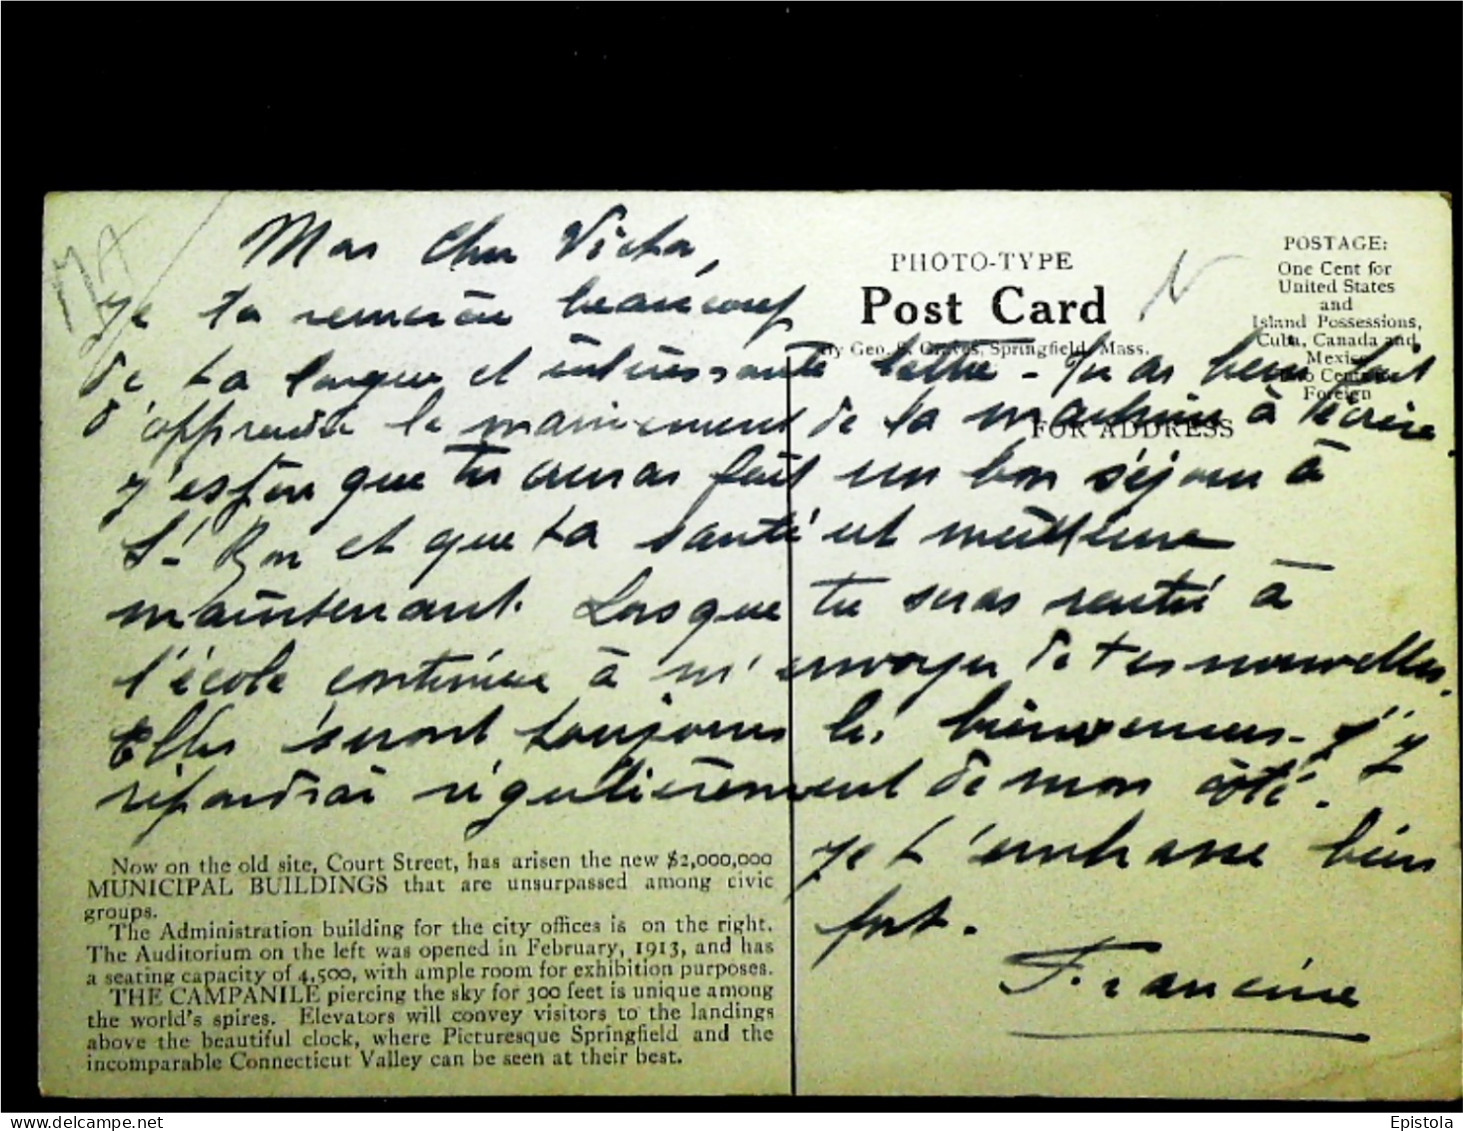 Mon Cher Victor,
Je te remercie beaucoup
de ta longue et intéressante lettre - Tu as bien fait
d'apprendre le maniement de la machine à écrire.
J'espère que tu auras fait un bon séjour à
St Bon et que ta santé est meilleure
maintenant. Lorsque tu seras rentré à
l'école continue à m'envoyer de tes nouvelles.
Elles seront toujours les bienvenues - J'y
répondrai régulièrement de mon côté.
Je t'embrasse bien
fort.
Francine
PHOTO-TYPE
Post Card
By Geo. S. Graves, Springfield, Mass.
FOR ADDRESS
POSTAGE:
One Cent for
United States
and
Island Possessions,
Cuba, Canada and
Mexico
Two Cents for
Foreign
Now on the old site, Court Street, has arisen the new $2,000,000
MUNICIPAL BUILDINGS that are unsurpassed among civic
groups.
The Administration building for the city offices is on the right.
The Auditorium on the left was opened in February, 1913, and has
a seating capacity of 4,500, with ample room for exhibition purposes.
THE CAMPANILE piercing the sky for 300 feet is unique among
the world's spires. Elevators will convey visitors to the landings
above the beautiful clock, where Picturesque Springfield and the
incomparable Connecticut Valley can be seen at their best.
Epistola